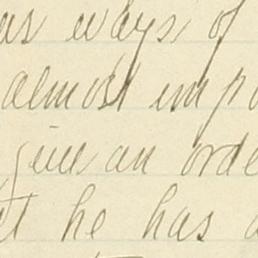 as ways of
almost impo
give an orde
t he has a